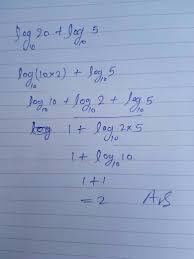 log₁₀ 20 + log₁₀ 5
log₁₀(10×2) + log₁₀ 5
log₁₀ 10 + log₁₀ 2 + log₁₀ 5
1 + log₁₀ 2×5
1 + log₁₀ 10
1 + 1
= 2 Ans